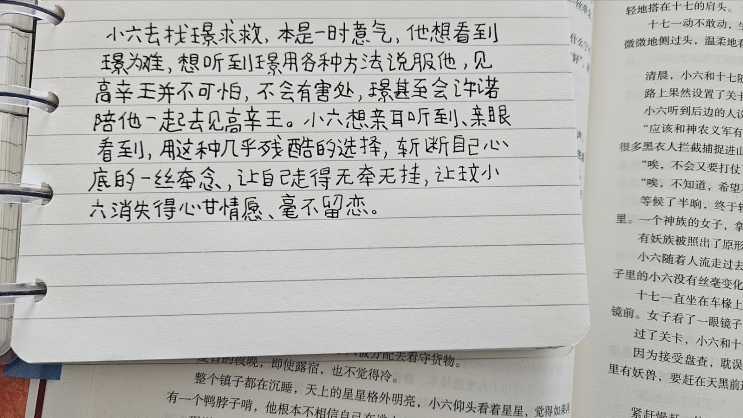 小六去找璟求救，本是一时意气，他想看到
璟为难，想听到璟用各种方法说服他，见
高辛王并不可怕，不会有害处，璟甚至会许诺
陪他一起去见高辛王。小六想亲耳听到、亲眼
看到，用这种几乎残酷的选择，斩断自己心
底的一丝牵念，让自己走得无牵无挂，让玟小
六消失得心甘情愿、毫不留恋。
轻地搭在十七的肩头。
十七一动不敢动，
微微地侧过头，温柔地
清晨，小六和十七
路上果然设置了关卡
小六听到后边的人议
“应该和神农义军有
很多黑衣人拦截捕捉进山
“唉，不会又要打仗
“唉，不知道，希望
等候了半晌，终于
里。一个神族的女子，拿
有妖族被照出了原形
小六随着人流走过去
子里的小六没有丝毫变化
十七一直坐在车椽上
镜前。女子看了一眼镜子
过了关卡，小六和十
因为接受盘查，耽误
里有妖兽，要赶在天黑前
被分配去看守货物。
夏日的夜晚，即使露宿，也不觉得冷。
整个镇子都在沉睡，天上的星星格外明亮，小六仰头看着星星，觉得如果
有一个鸭脖子啃，他根本不相信自己在逃